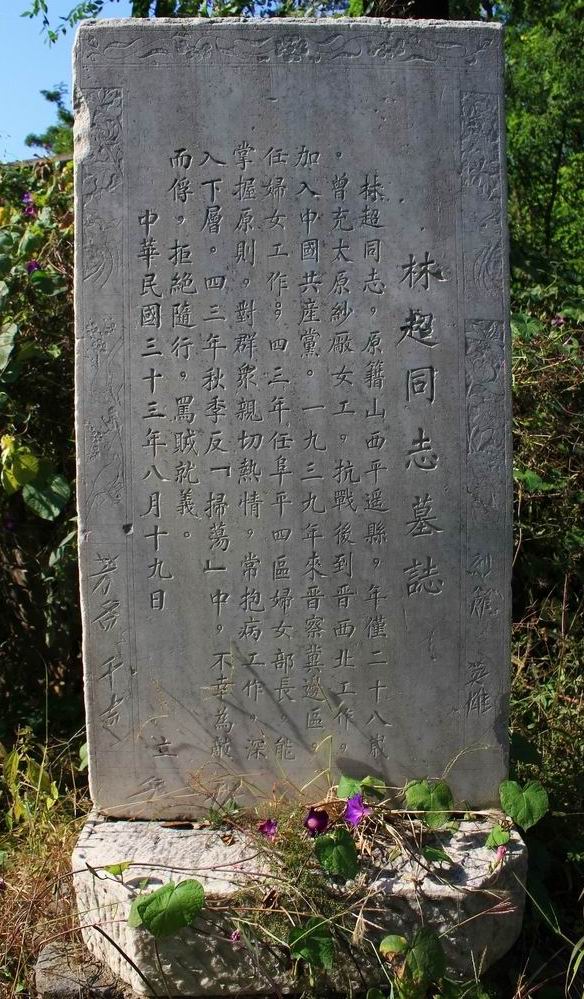 英雄
林超同志墓誌
林超同志，原籍山西平遥縣，年僅二十八歲
。曾充太原紗廠女工。抗戰後到晋西北工作，
加入中國共産黨。一九三九年來晋察冀邊區。
任婦女工作。四三年任阜平四區婦女部長，能
掌握原則，對群衆親切熱情，常抱病工作，深
入下層。四三年秋季反「掃蕩」中，不幸為敵
而俘，拒絶隨行，罵賊就義。
中華民國三十三年八月十九日 立
芳名千古